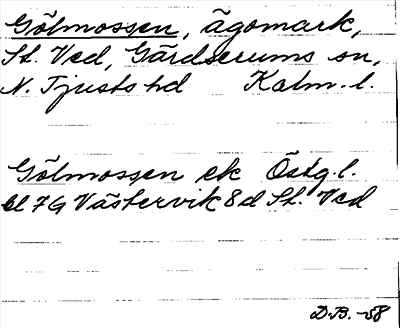 Gölmossen, ägomark,
St. Ved, Gärdserums sn,
N. Tjusts hd Kalm. l.
Gölmossen ek Östg. l.
bl 7G Västervik 8d St. Ved
D.B. -58